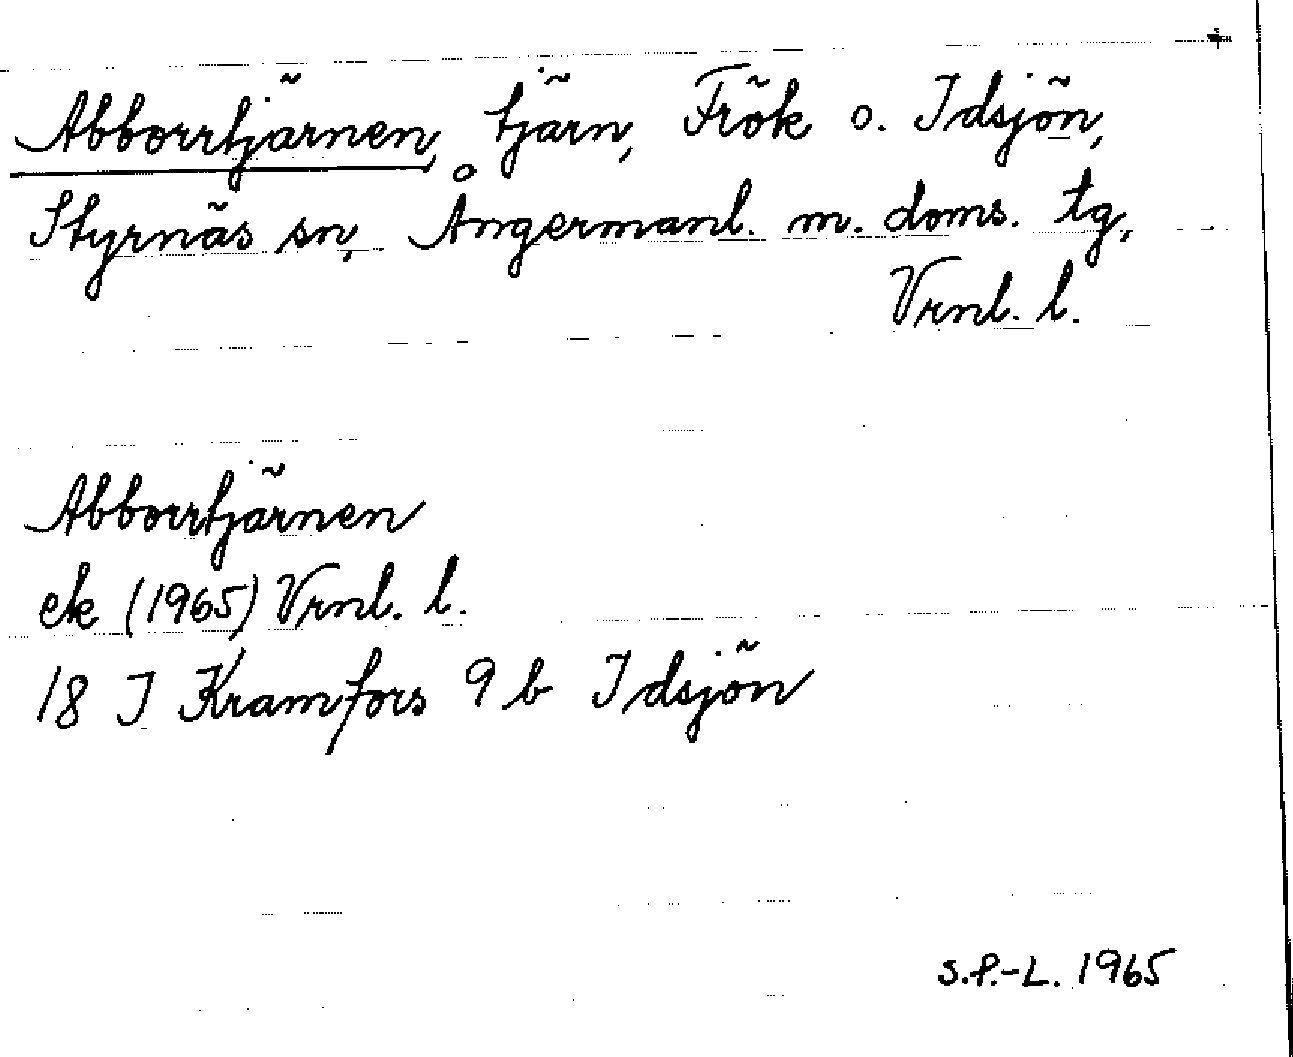 Abborrtjärnen, tjärn, Frök o. Idsjön,
Styrnäs sn, Ångermanl. m. doms. tg,
Vrnl. l.
Abborrtjärnen
ek (1965) Vrnl. l.
18 J Kramfors 9 b Idsjön
S.P.-L. 1965